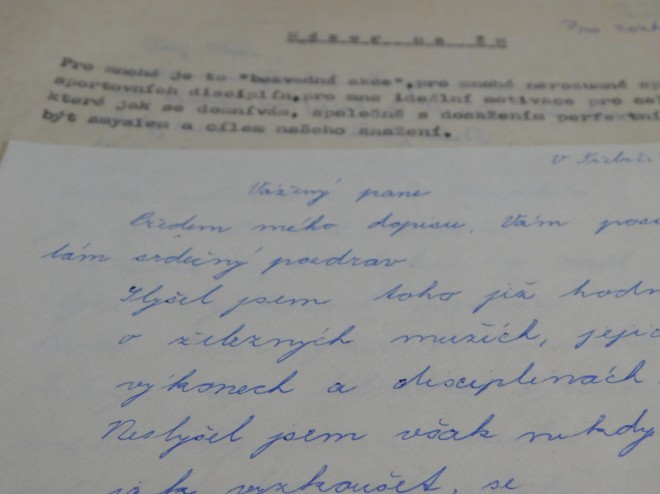 Názor na ŽM
Pro
Pro mnohé je to "bezvadní akce", pro mnohé nerozumné
sportovních disciplín, pro mne ideální motivace pro
které jak se domnívám, společně s dosažením
být smyslem a cílem našeho snažení.
V
Vážený pane
Předem mého dopisu, Vám
lám srdečný pozdrav.
Slyšel jsem toho již
o železných mužích,
výkonech a disciplinách.
Neslyšel jsem však nikdy
jak vyzkoušet, se